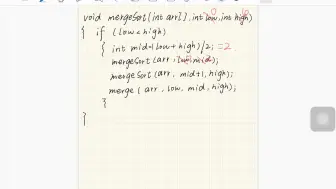 void mergeSort(int arr[], int low, int high)
{ if (low < high)
{ int mid=(low+high)/2; =2
mergeSort(arr, low, mid);
mergeSort(arr, mid+1, high);
merge(arr, low, mid, high);
}
}